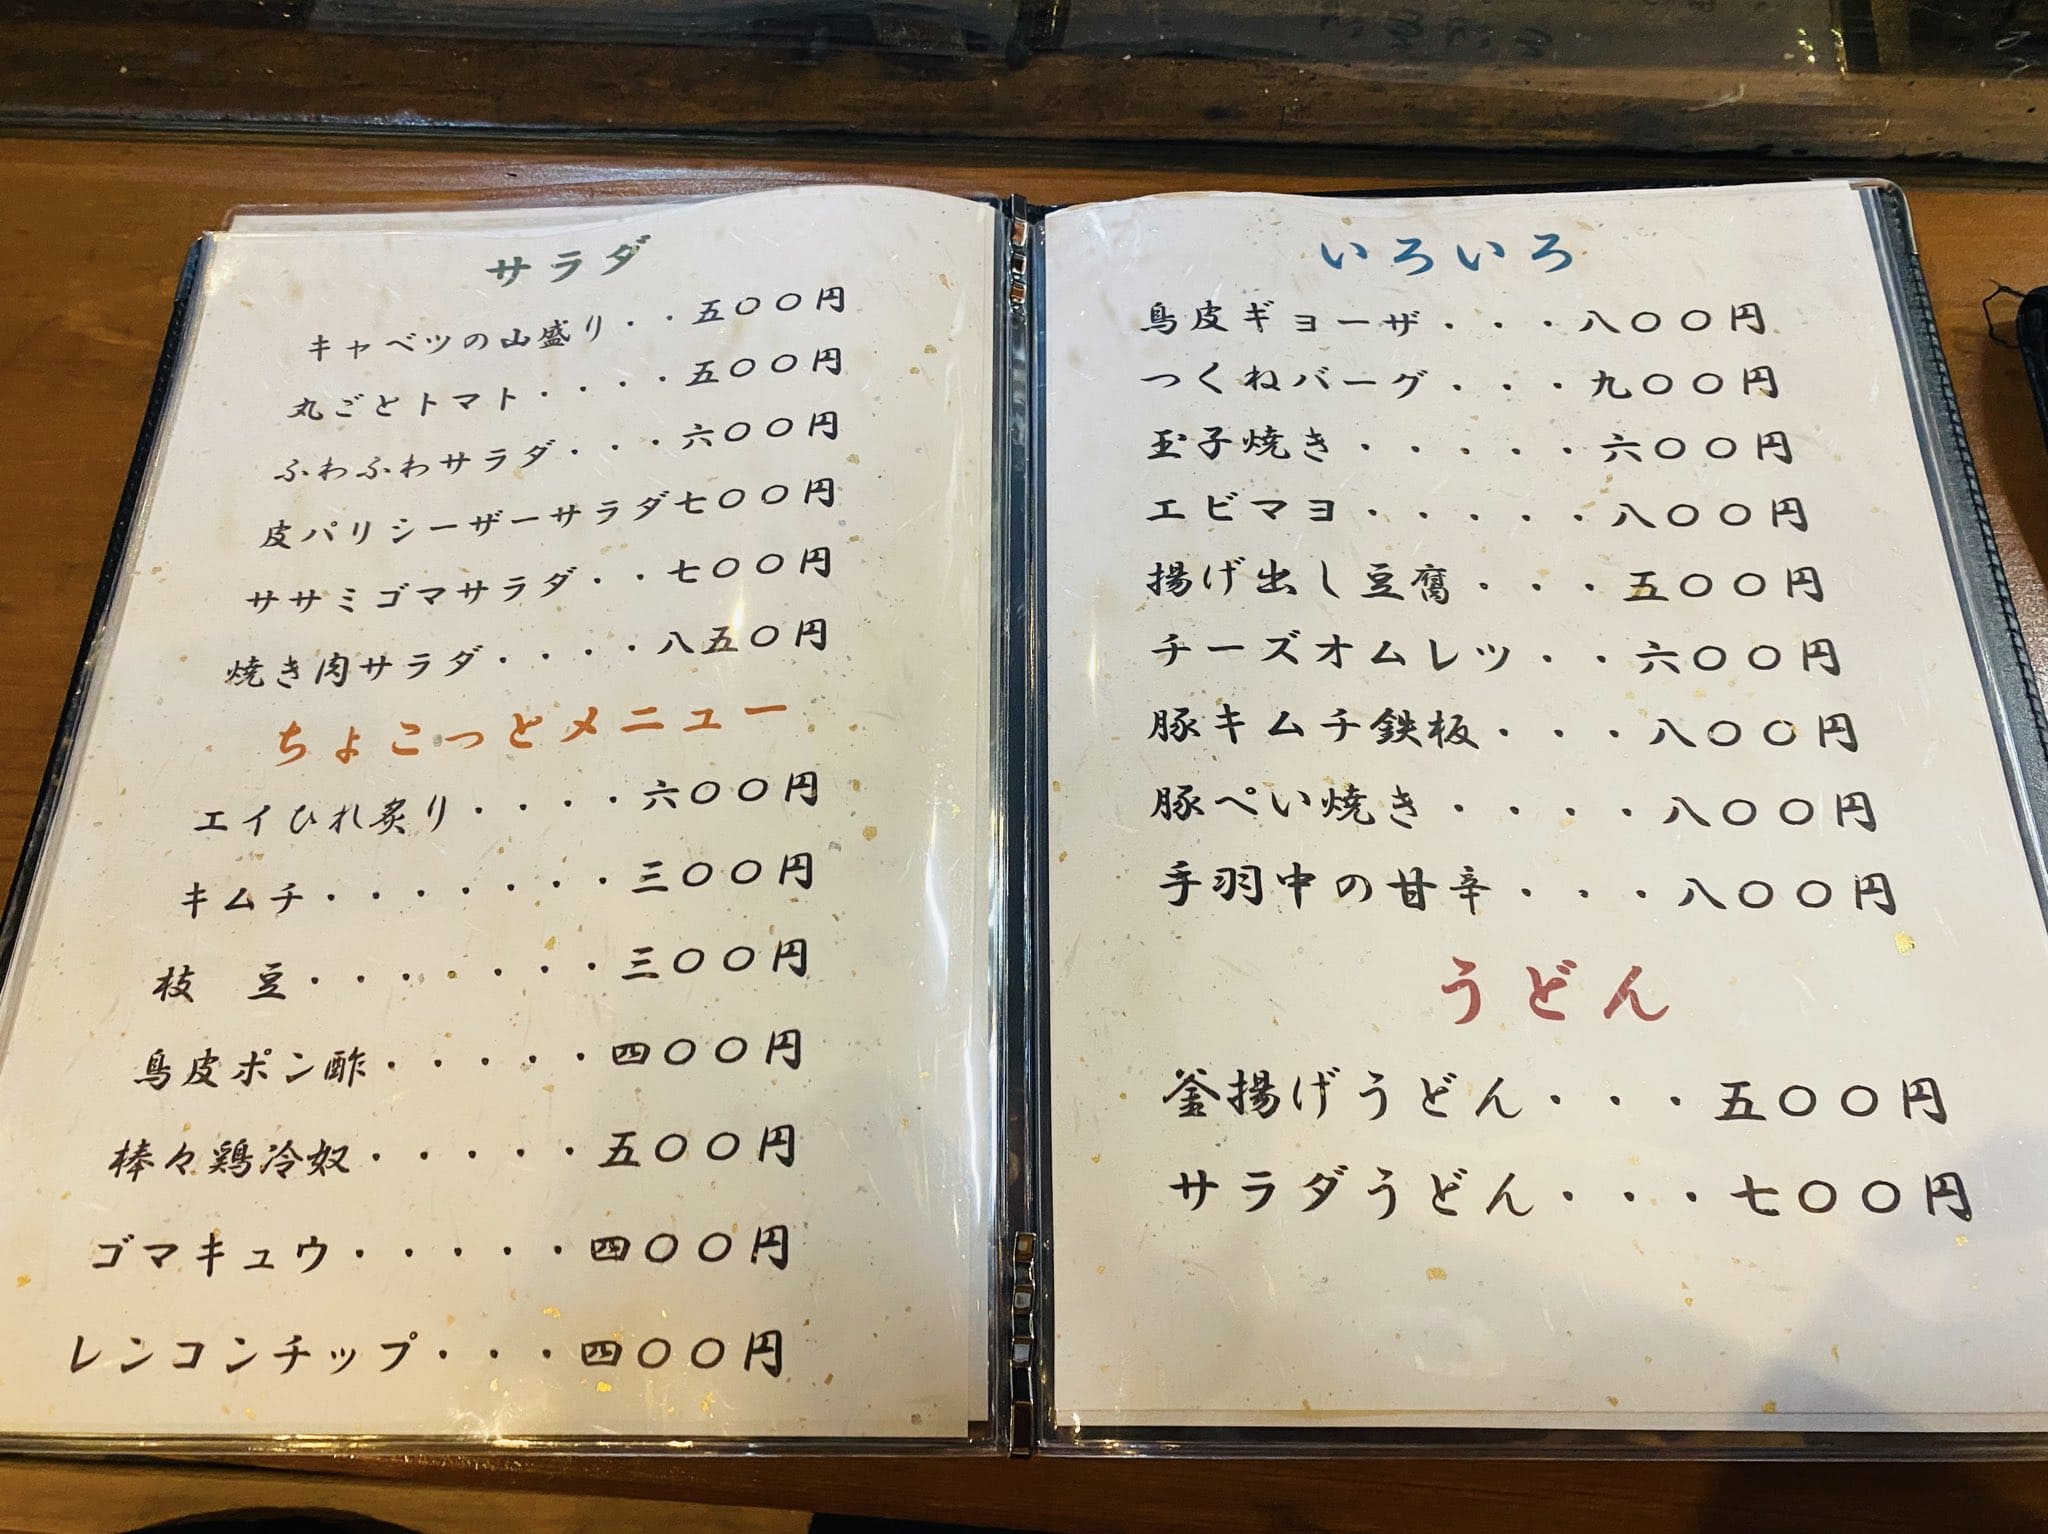 サラダ
キャベツの山盛り・・五〇〇円
丸ごとトマト・・・・五〇〇円
ふわふわサラダ・・・六〇〇円
皮パリシーザーサラダ七〇〇円
ササミゴマサラダ・・七〇〇円
焼き肉サラダ・・・・八五〇円
ちょこっとメニュー
エイひれ炙り・・・・六〇〇円
キムチ・・・・・・・三〇〇円
枝　豆・・・・・・・三〇〇円
鳥皮ポン酢・・・・・四〇〇円
棒々鶏冷奴・・・・・五〇〇円
ゴマキュウ・・・・・四〇〇円
レンコンチップ・・・四〇〇円
いろいろ
鳥皮ギョーザ・・・八〇〇円
つくねバーグ・・・九〇〇円
玉子焼き・・・・・六〇〇円
エビマヨ・・・・・八〇〇円
揚げ出し豆腐・・・五〇〇円
チーズオムレツ・・六〇〇円
豚キムチ鉄板・・・八〇〇円
豚ぺい焼き・・・・八〇〇円
手羽中の甘辛・・・八〇〇円
うどん
釜揚げうどん・・・五〇〇円
サラダうどん・・・七〇〇円